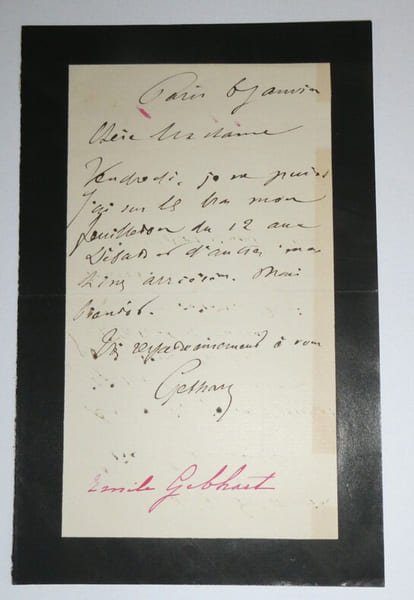 Paris 6 Janvier
Chère Madame
Vendredi, je ne puis
J'ai sur les bras mon
feuilleton du 12 aux
Débats et d'autres
arriérés. Mais
bientôt.
respectueusement à vous
Gebhart
Emile Gebhart